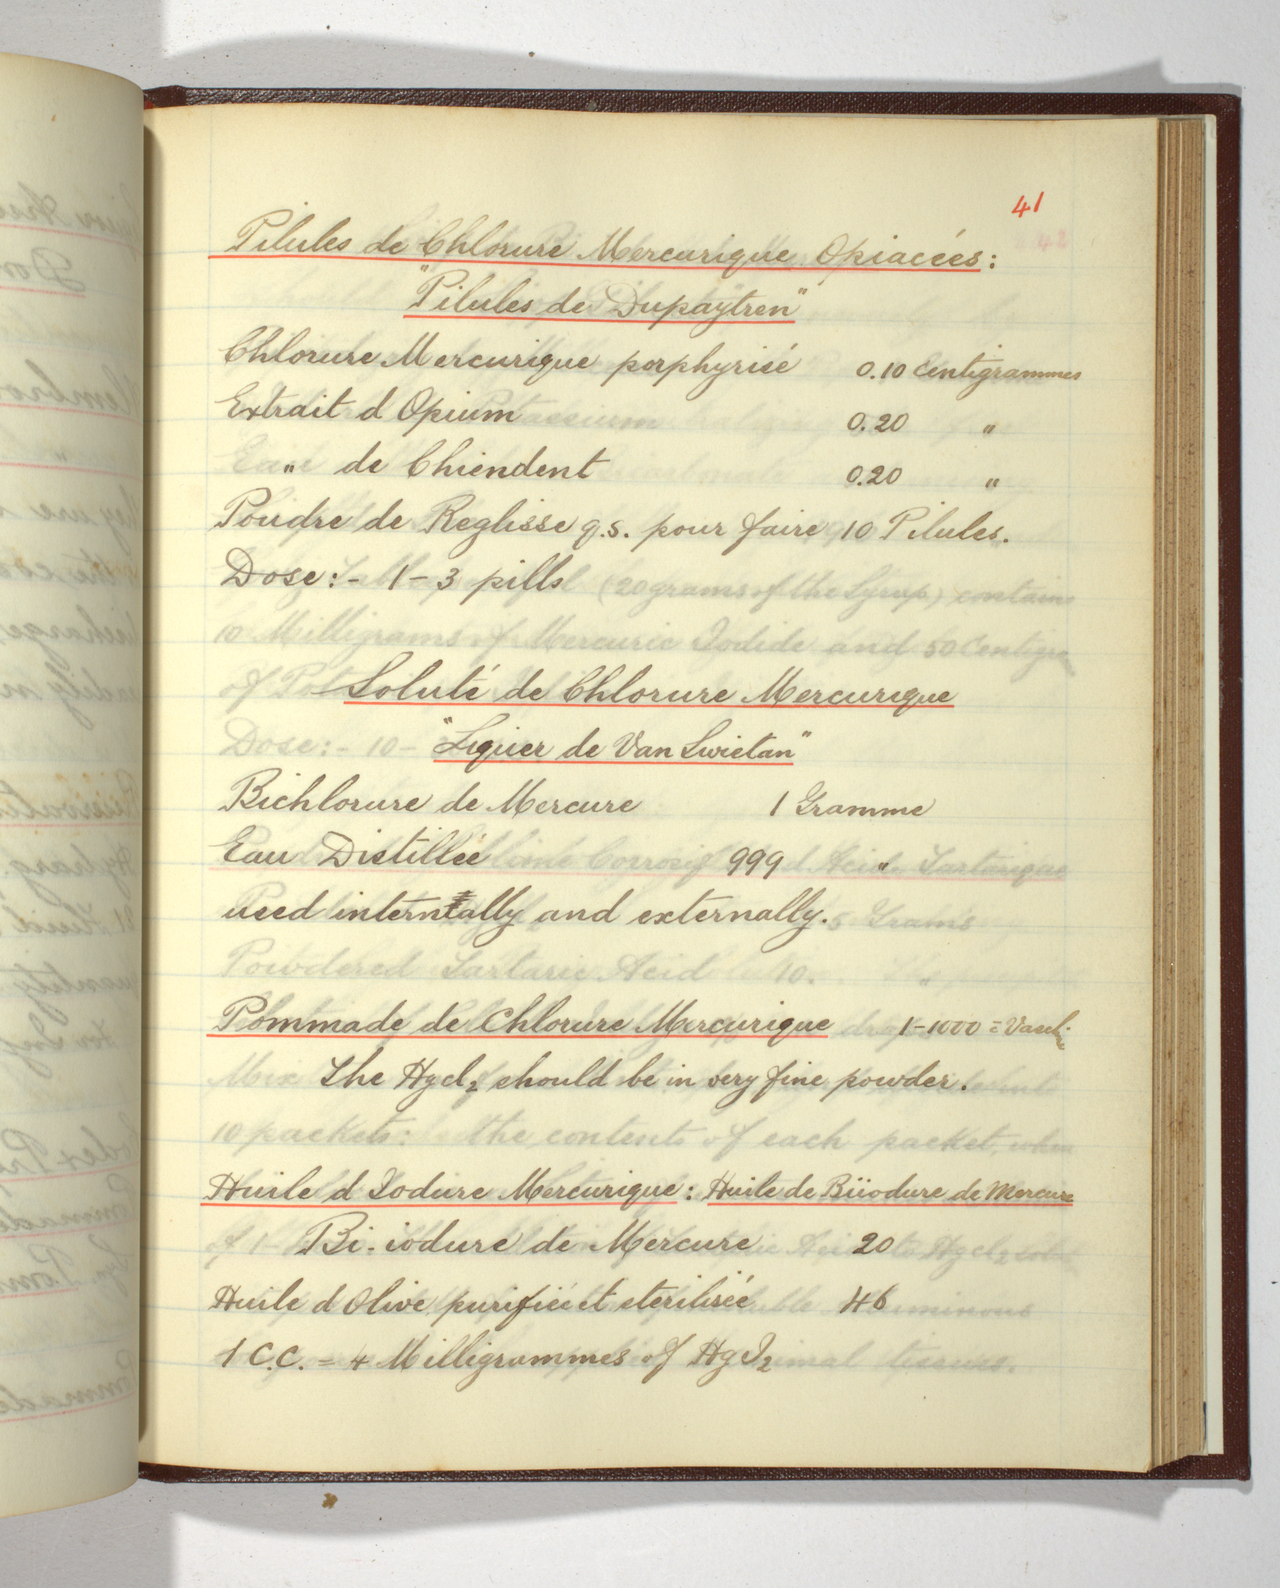 41
Pilules de Chlorure Mercurique Opiacées:
"Pilules de Dupaytren"
Chlorure Mercurique porphyrisé 0.10 Centigrammes
Extrait d Opium 0.20 "
" de Chiendent 0.20 "
Poudre de Reglisse q.s. pour faire 10 Pilules.
Dose:- 1-3 pills
Soluté de Chlorure Mercurique
"Liquer de Van Swietan"
Bichlorure de Mercure 1 Gramme
Eau Distillée 999 "
used internally and externally.
Pommade de Chlorure Mercurique 1-1000 = Vaseline
The Hgcl2 should be in very fine powder.
Huile d Iodure Mercurique: Huile de Biiodure de Mercure
Bi-iodure de Mercure 20
Huile d Olive purifiée et sterilisée 46
1 C.C. = 4 Milligrammes of HgI2